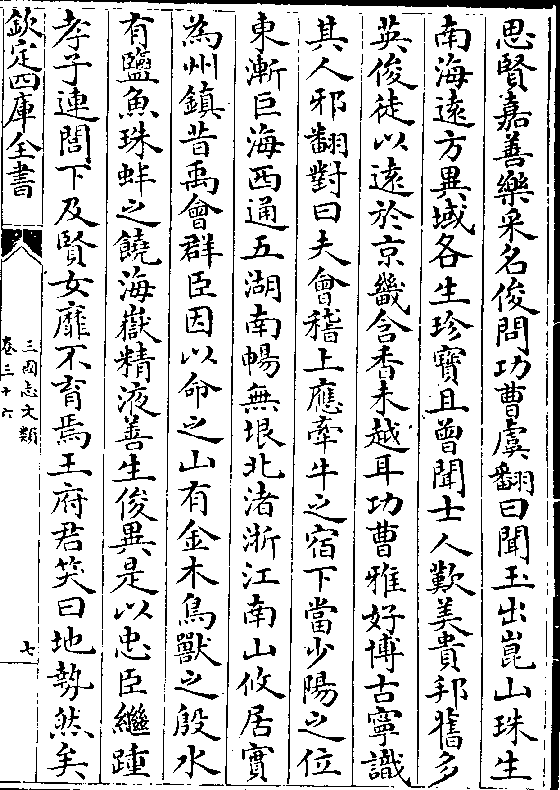 思賢嘉善樂采名俊問功曹虞翻曰聞玉出崑山珠生
南海遠方異域各生珍寶且曽聞士人歎美貴邦舊多
英俊徒以遠於京畿含香未越耳功曹雅好博古寧識
其人邪翻對曰夫㑹稽上應牽牛之宿下當少陽之位
東漸巨海西通五湖南暢無垠北渚浙江南山攸居實
為州鎮昔禹㑹群臣因以命之山有金木鳥獸之殷水
有鹽魚珠蚌之饒海嶽精液善生俊異是以忠臣繼踵
孝子連閭下及賢女靡不育焉王府君笑曰地勢然矣
欽定四庫全書
三國志文類
卷三十六
七